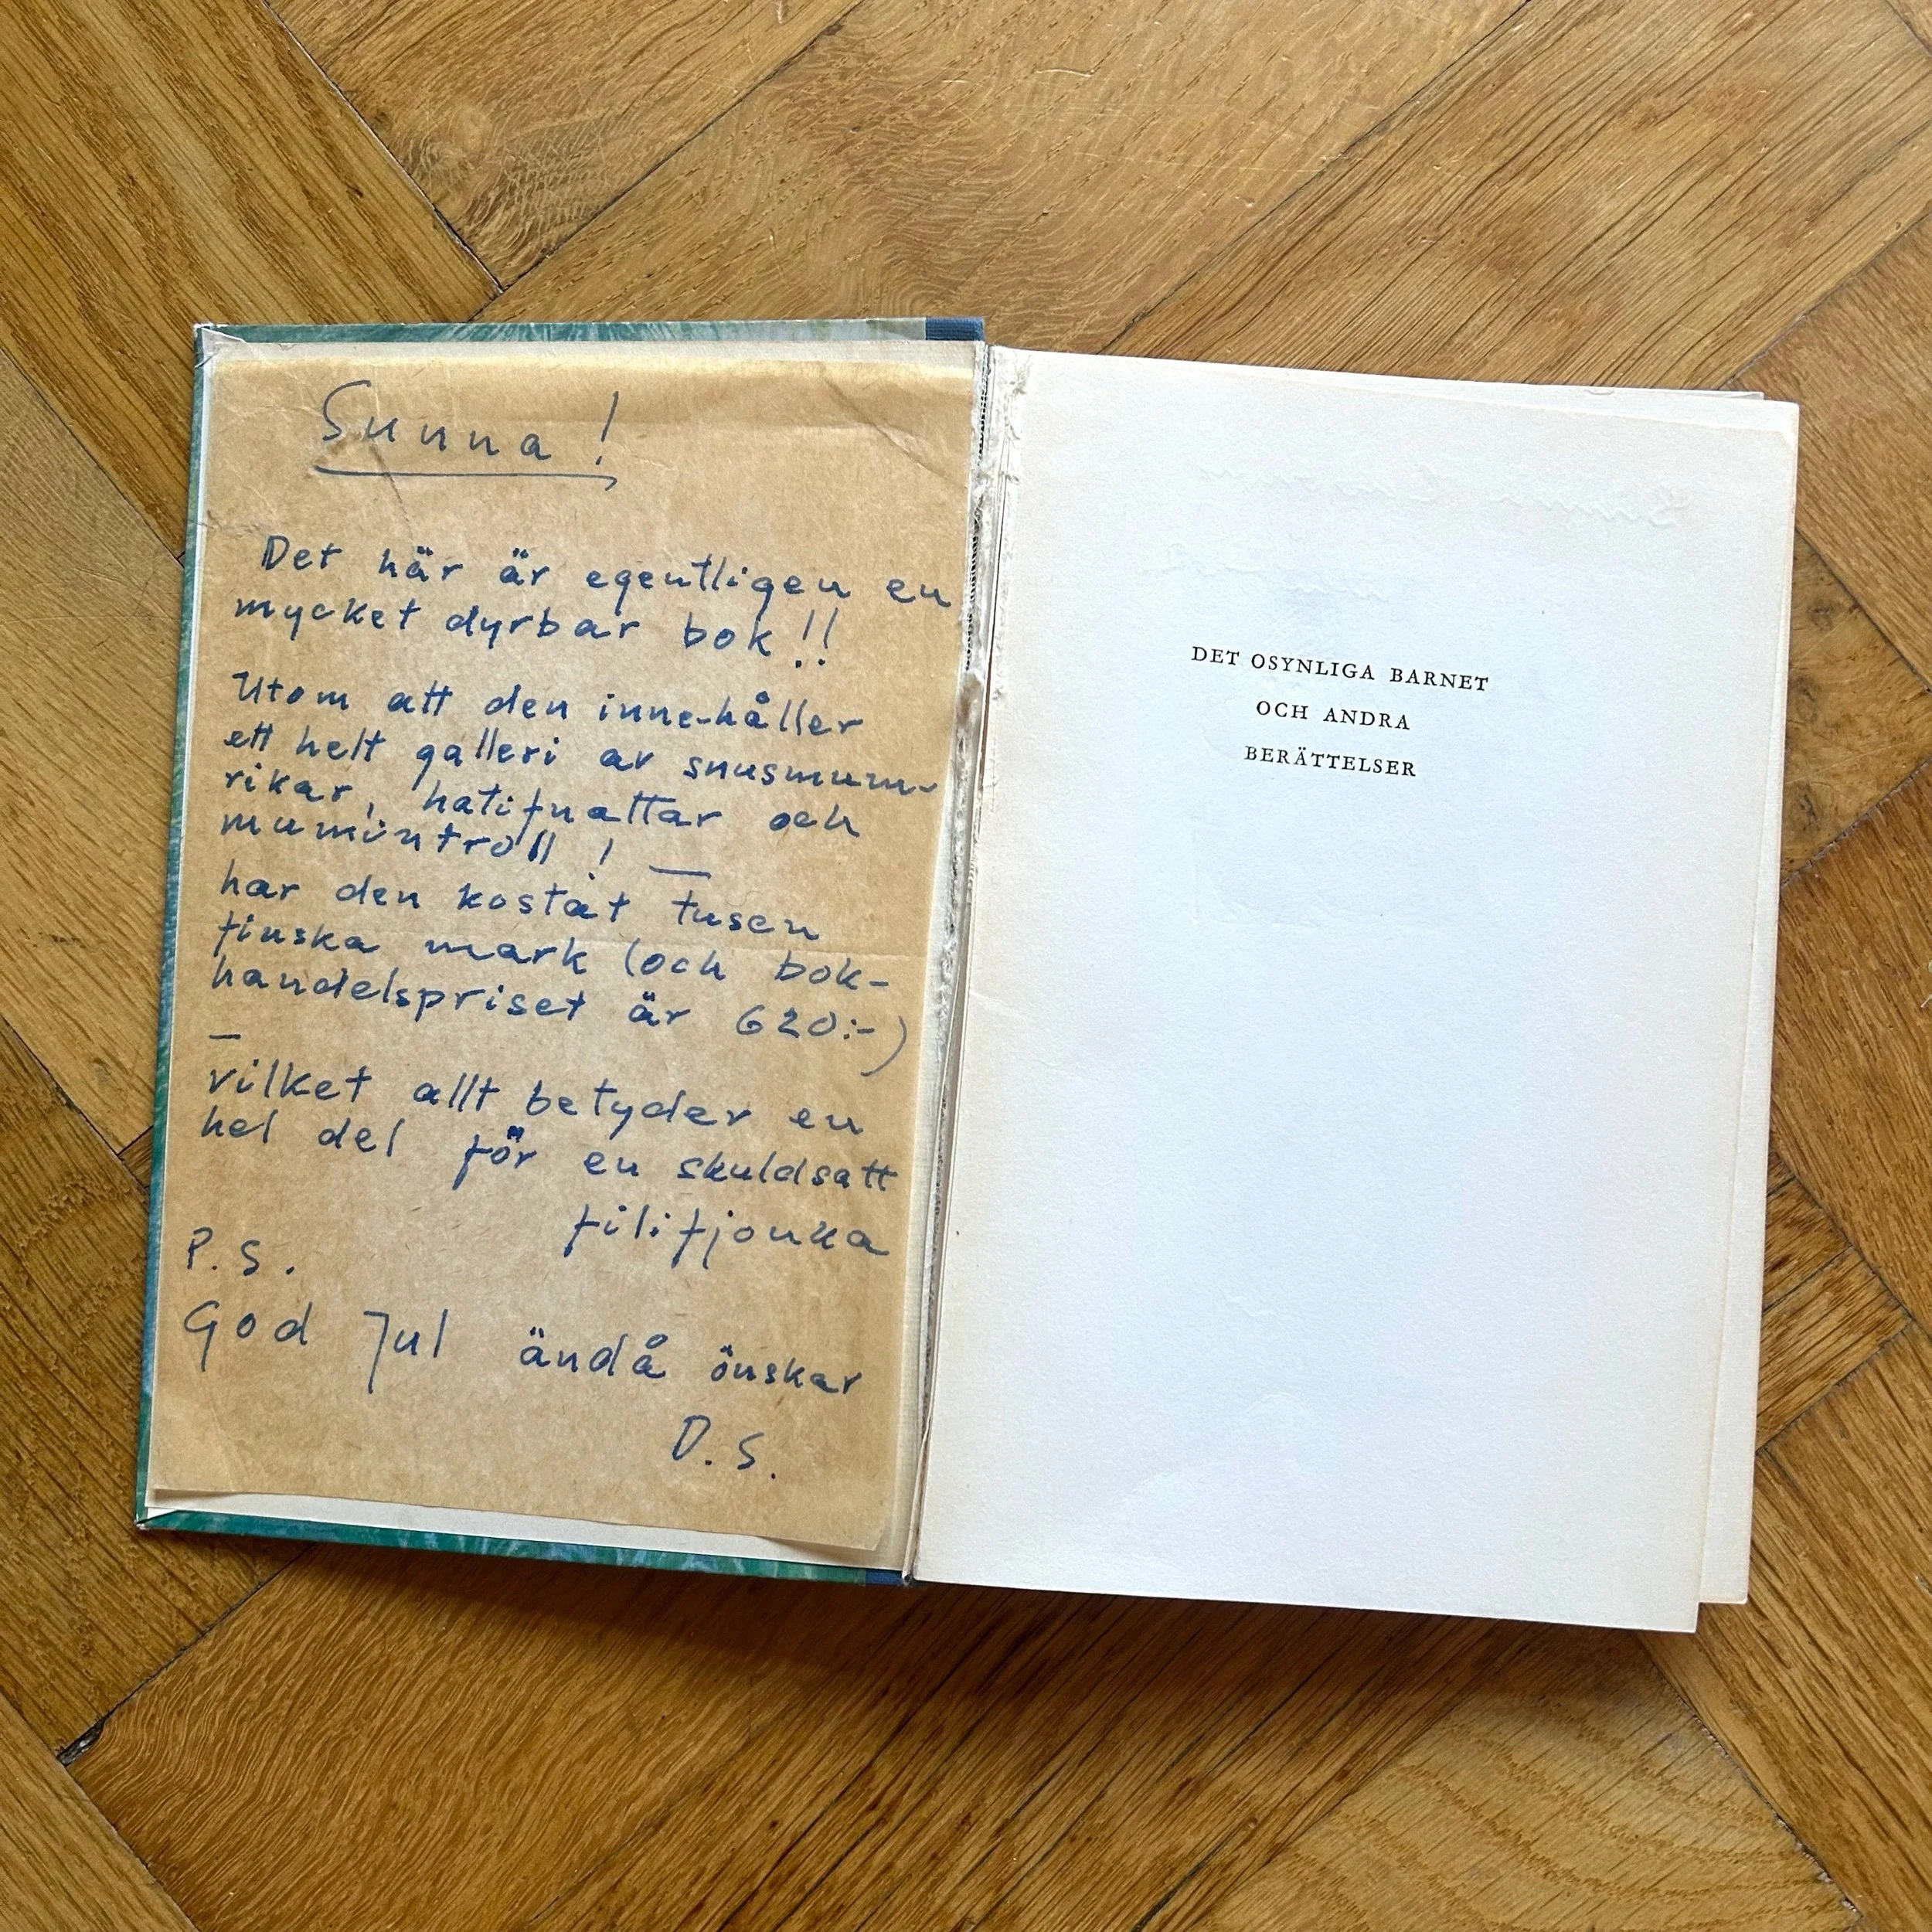 Sunna!
Det här är egentligen en
mycket dyrbar bok!!
Utom att den inne-håller
ett helt galleri av snusmum-
rikar, hatifnattar och
mumintroll! —
har den kostat tusen
finska mark (och bok-
handelspriset är 620:-)
—
vilket allt betyder en
hel del för en skuldsatt
filifjonka
P.S.
God Jul ändå önskar
D.S.
DET OSYNLIGA BARNET
OCH ANDRA
BERÄTTELSER